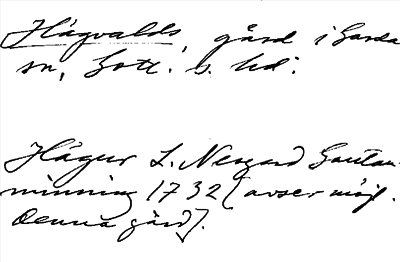 Hägvalds, gård i Garda
sn, Gotl. s. hd:
Hägur L. Nergard Gautau-
minning 1732 (avser möjl.
denna gård).